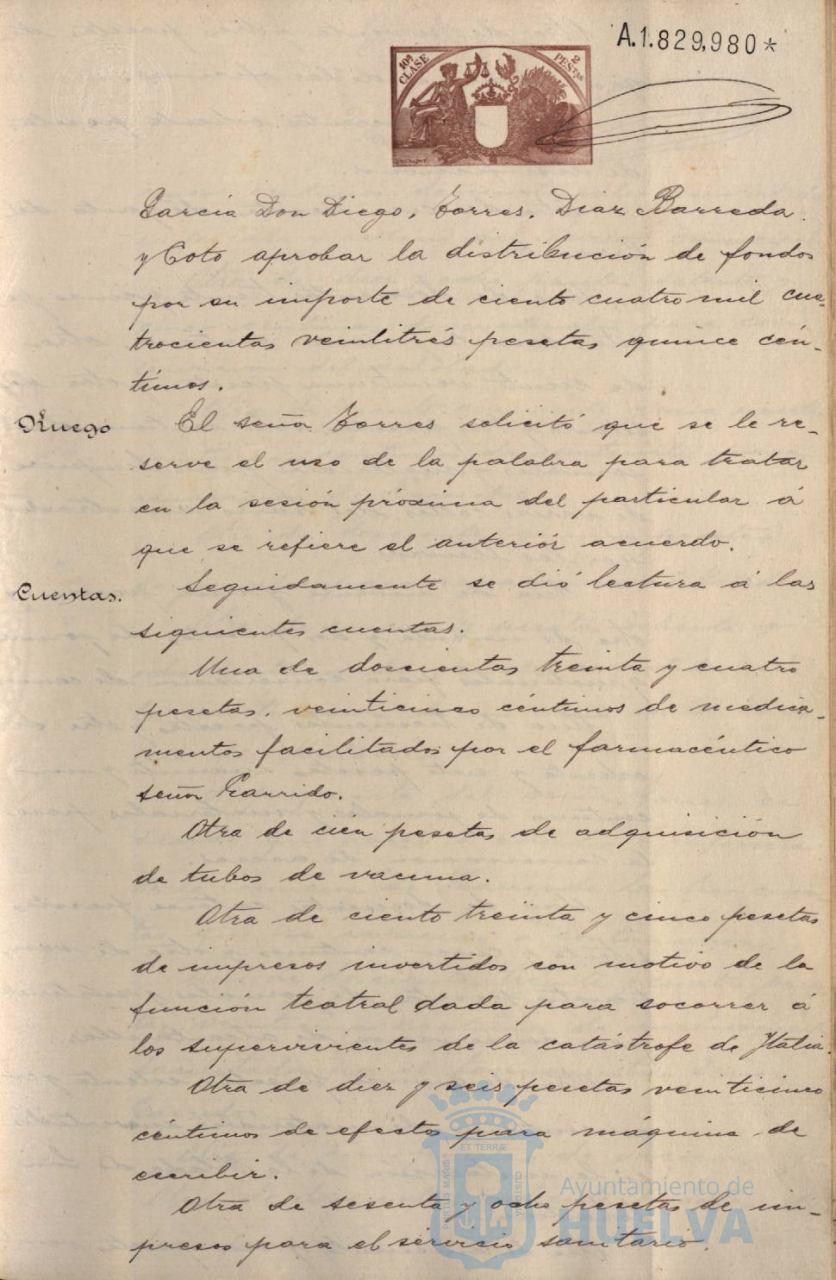 A.1.829,980*
10ª CLASE
2 PESTAS
García Don Diego, Torres, Diaz Barreda
y Coto aprobar la distribución de fondos
por su importe de ciento cuatro mil cua-
trocientas veintitrés pesetas quince cén-
timos.
Ruego
El señor Torres solicitó que se le re-
serve el uso de la palabra para tratar
en la sesión próxima del particular á
que se refiere el anteriór acuerdo.
Cuentas.
Seguidamente se dió lectura á las
siguientes cuentas.
Una de doscientas treinta y cuatro
pesetas, veinticinco céntimos de medica-
mentos facilitados por el farmacéutico
señor Garrido.
Otra de cien pesetas de adquisición
de tubos de vacuna.
Otra de ciento treinta y cinco pesetas
de impresos invertidos con motivo de la
función teatral dada para socorrer á
los supervivientes de la catástrofe de Italia.
Otra de diez y seis pesetas veinticinco
céntimos de efectos para máquina de
escribir.
Otra de sesenta y ocho pesetas de im-
presos para el servicio sanitario.
Ayuntamiento de
HUELVA